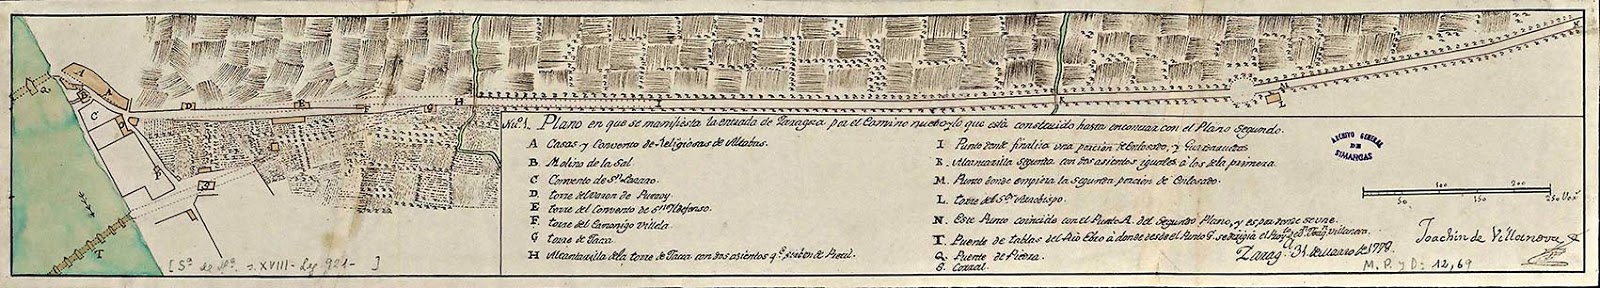 Nu.º 1. Plano en que se manifiesta la entrada de Zaragza por el Camino nuebo, y lo que está construido hasta encontrar con el Plano Segundo.
A Casas y Convento de Religiosas de Altabas.
B Molino de la Sal
C Convento de Sⁿ Lazaro.
D torre del Varon de Purroy
E torre del Convento de Sⁿ Yldefonso.
F torre del Canonigo Villela
G torre de Taca
H Alcantarilla de la torre de Taca con dos asientos qᵉ sirben de Pretil.
I Punto donde finaliza una porcion de Enlosado, y Guardaruedas
K Alcantarilla segunda con dos asientos iguales à los de la primera.
M. Punto donde empieza la segunda porcion de Enlosado.
L. torre del Sᵒʳ Arzobispo.
N. Este Punto coincide con el Punto A. del Segundo Plano, y es por donde se une.
T. Puente de tablas del Rio Ebro à donde desde el Punto F. se dirigia el
Q. Puente de Piedra.
S. Corral.
ARCHIVO GENERAL
DE
SIMANCAS
100 200
50 150 250 Varˢ
Zarag.ª 31 de marzo de 1779.
Joachin de Villanova
M. P. y D. 12, 69
[Sº de Mª. s. XVIII - Leg 921 - ]
A
A
B
C
D
E
F
G
H
I
Q
T
S
N